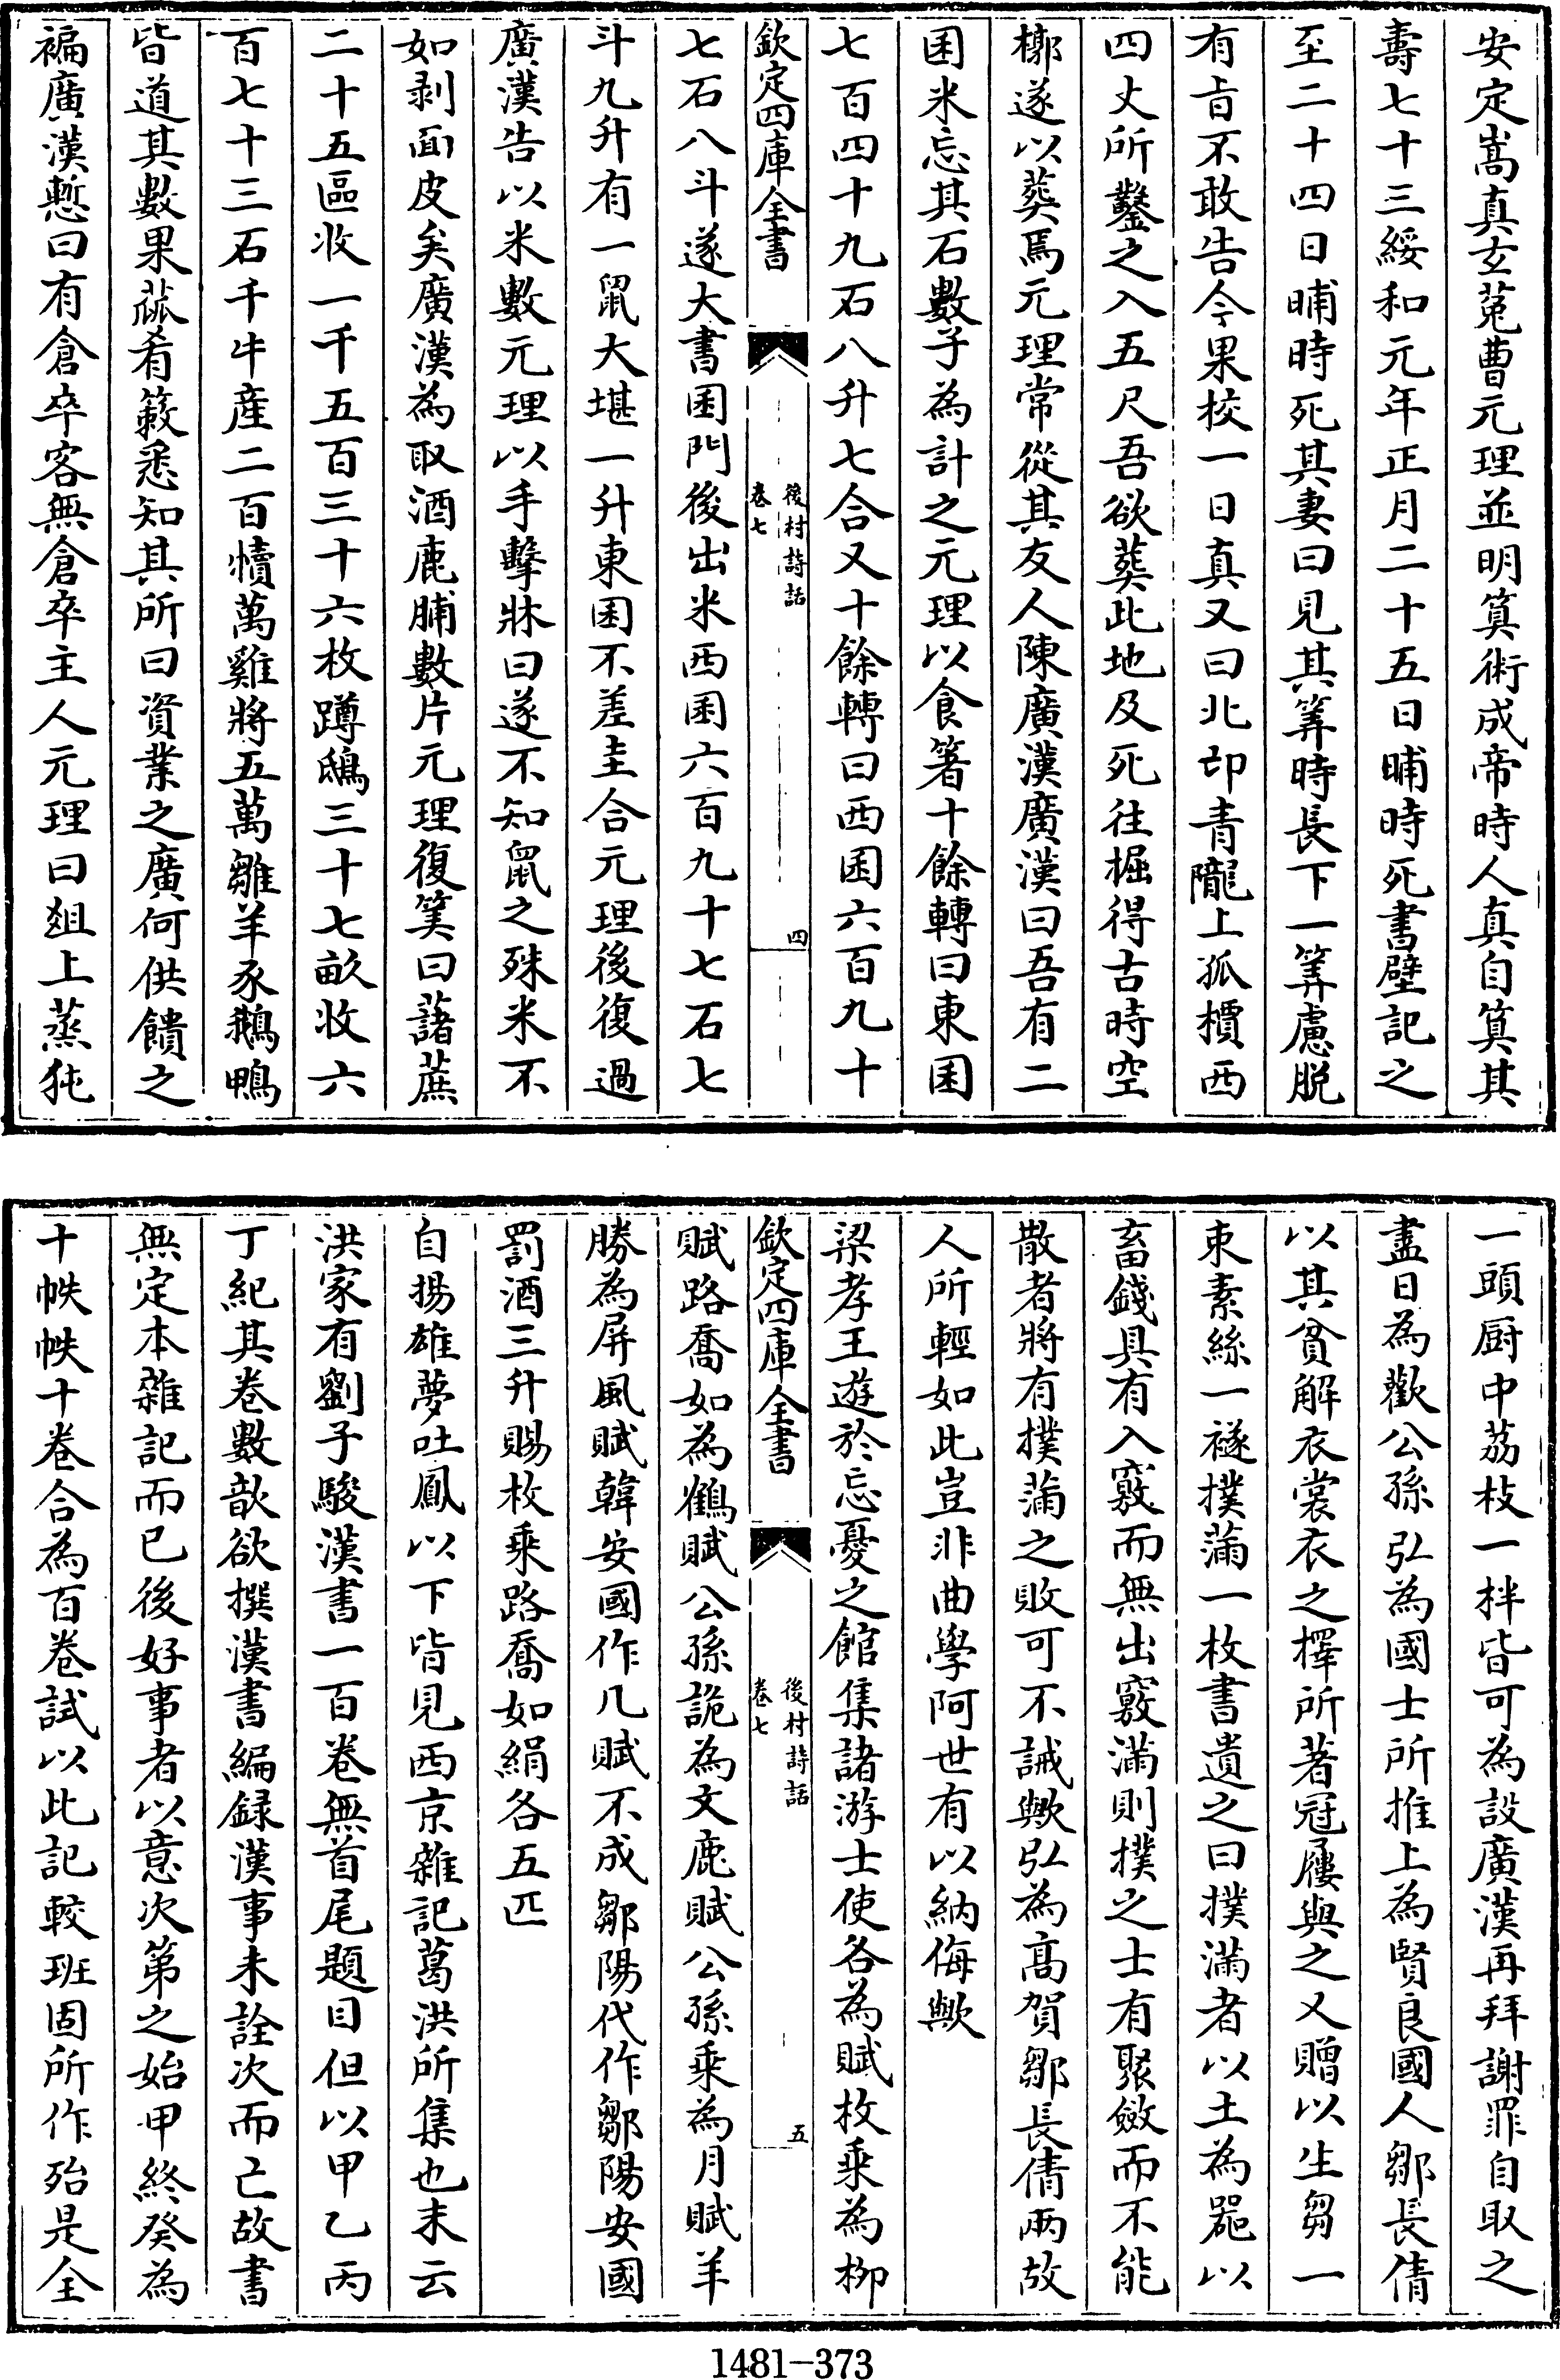 安定嵩真玄菟曹元理並明筭術成帝時人真自筭其
壽七十三綏和元年正月二十五日晡時死書壁記之
至二十四日晡時死其妻曰見其筭時長下一筭慮脱
有㫖不敢告今果校一日真又曰北邙青隴上孤檟西
四丈所鑿之入五尺吾欲葬此地及死往掘得古時空
槨遂以葬焉元理常從其友人陳廣漢廣漢曰吾有二
囷米忘其石數子為計之元理以食箸十餘轉曰東囷
七百四十九石八升七合又十餘轉曰西囷六百九十
欽定四庫全書
後村詩話
卷七
四
七石八斗遂大書囷門後出米西囷六百九十七石七
斗九升有一鼠大堪一升東囷不差圭合元理後復過
廣漢告以米數元理以手擊牀曰遂不知鼠之殊米不
如剥面皮矣廣漢為取酒鹿脯數片元理復筭曰藷蔗
二十五區收一千五百三十六枚蹲鴟三十七畝收六
百七十三石千牛産二百犢萬雞將五萬雛羊豕鵝鴨
皆道其數果蓏肴簌悉知其所曰資業之廣何供饋之
褊廣漢慙曰有倉卒客無倉卒主人元理曰俎上蒸㹠
一頭厨中荔枝一柈皆可為設廣漢再拜謝罪自取之
盡日為歡公孫弘為國士所推上為賢良國人鄒長倩
以其貧解衣裳衣之擇所著冠屨與之又贈以生芻一
束素絲一襚撲滿一枚書遺之曰撲滿者以土為噐以
畜錢具有入竅而無出竅滿則撲之士有聚斂而不能
散者將有撲滿之敗可不誡歟弘為髙賀鄒長倩兩故
人所輕如此豈非曲學阿世有以納侮歟
梁孝王遊於忘憂之館集諸游士使各為賦枚乘為柳
欽定四庫全書
後村詩話
卷七
五
賦路喬如為鶴賦公孫詭為文鹿賦公孫乘為月賦羊
勝為屏風賦韓安國作几賦不成鄒陽代作鄒陽安國
罰酒三升賜枚乘路喬如絹各五匹
自揚雄夢吐鳳以下皆見西京雜記葛洪所集也末云
洪家有劉子駿漢書一百卷無首尾題目但以甲乙丙
丁紀其卷數歆欲撰漢書編録漢事未詮次而亡故書
無定本雜記而已後好事者以意次第之始甲終癸為
十帙帙十卷合為百卷試以此記較班固所作殆是全
1481-373